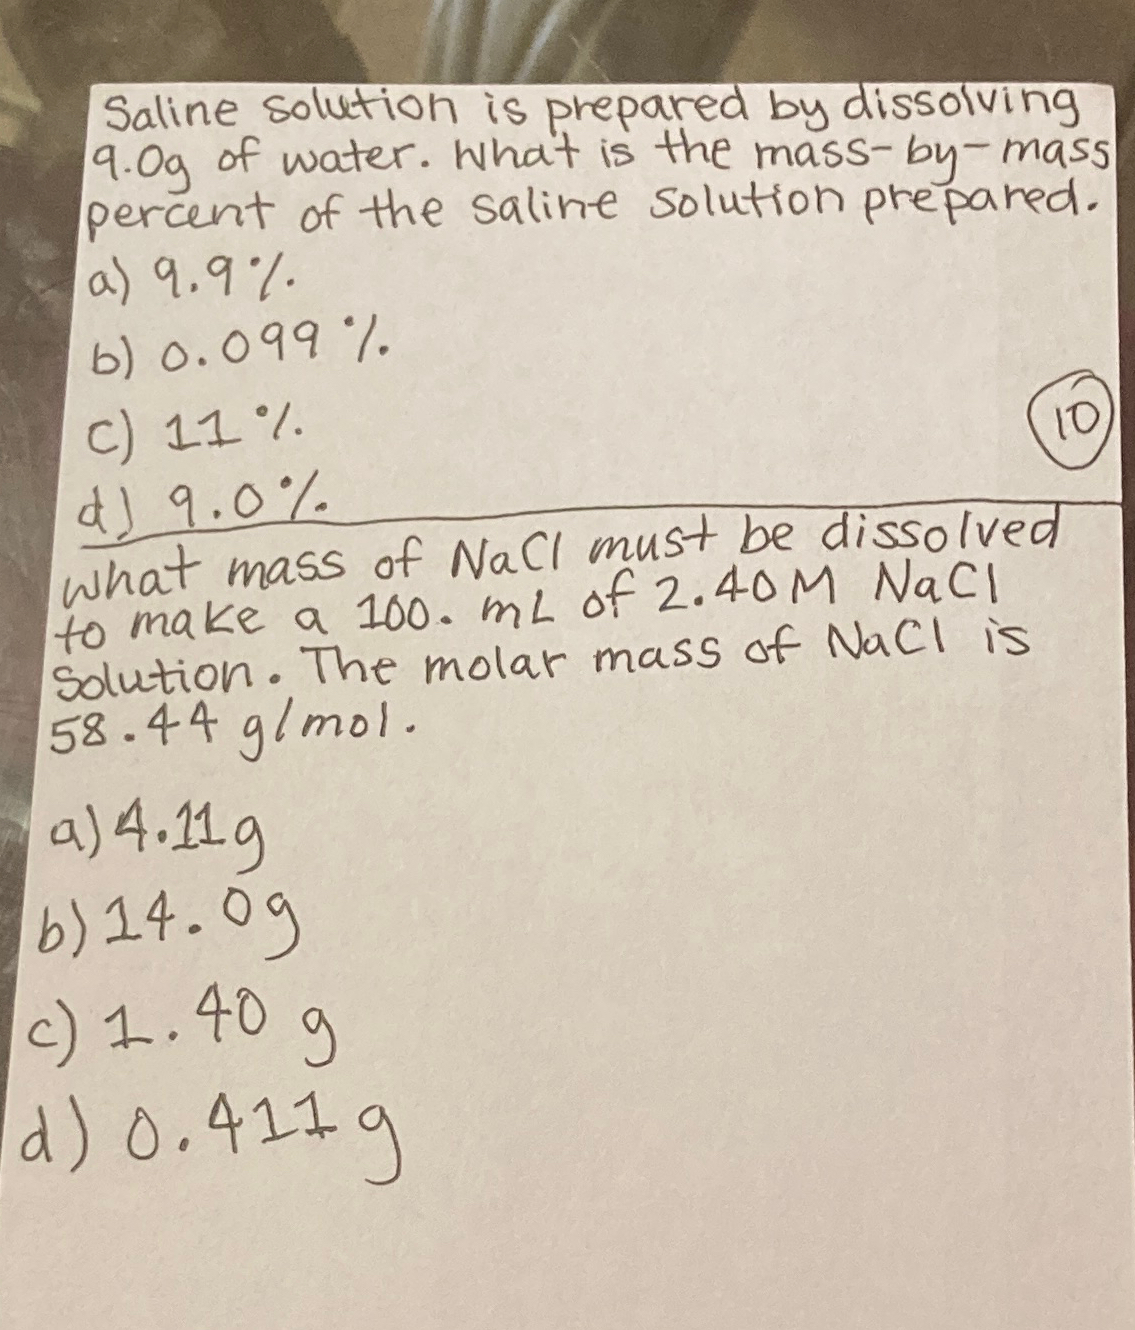 Saline solution is prepared by dissolving
9.0g of water. What is the mass-by-mass
percent of the saline solution prepared.
a) 9.9%
b) 0.099%
c) 11%
10
d) 9.0%
What mass of NaCl must be dissolved
to make a 100. mL of 2.40M NaCl
solution. The molar mass of NaCl is
58.44 g/mol.
a) 4.11g
b) 14.0g
c) 1.40 g
d) 0.411g